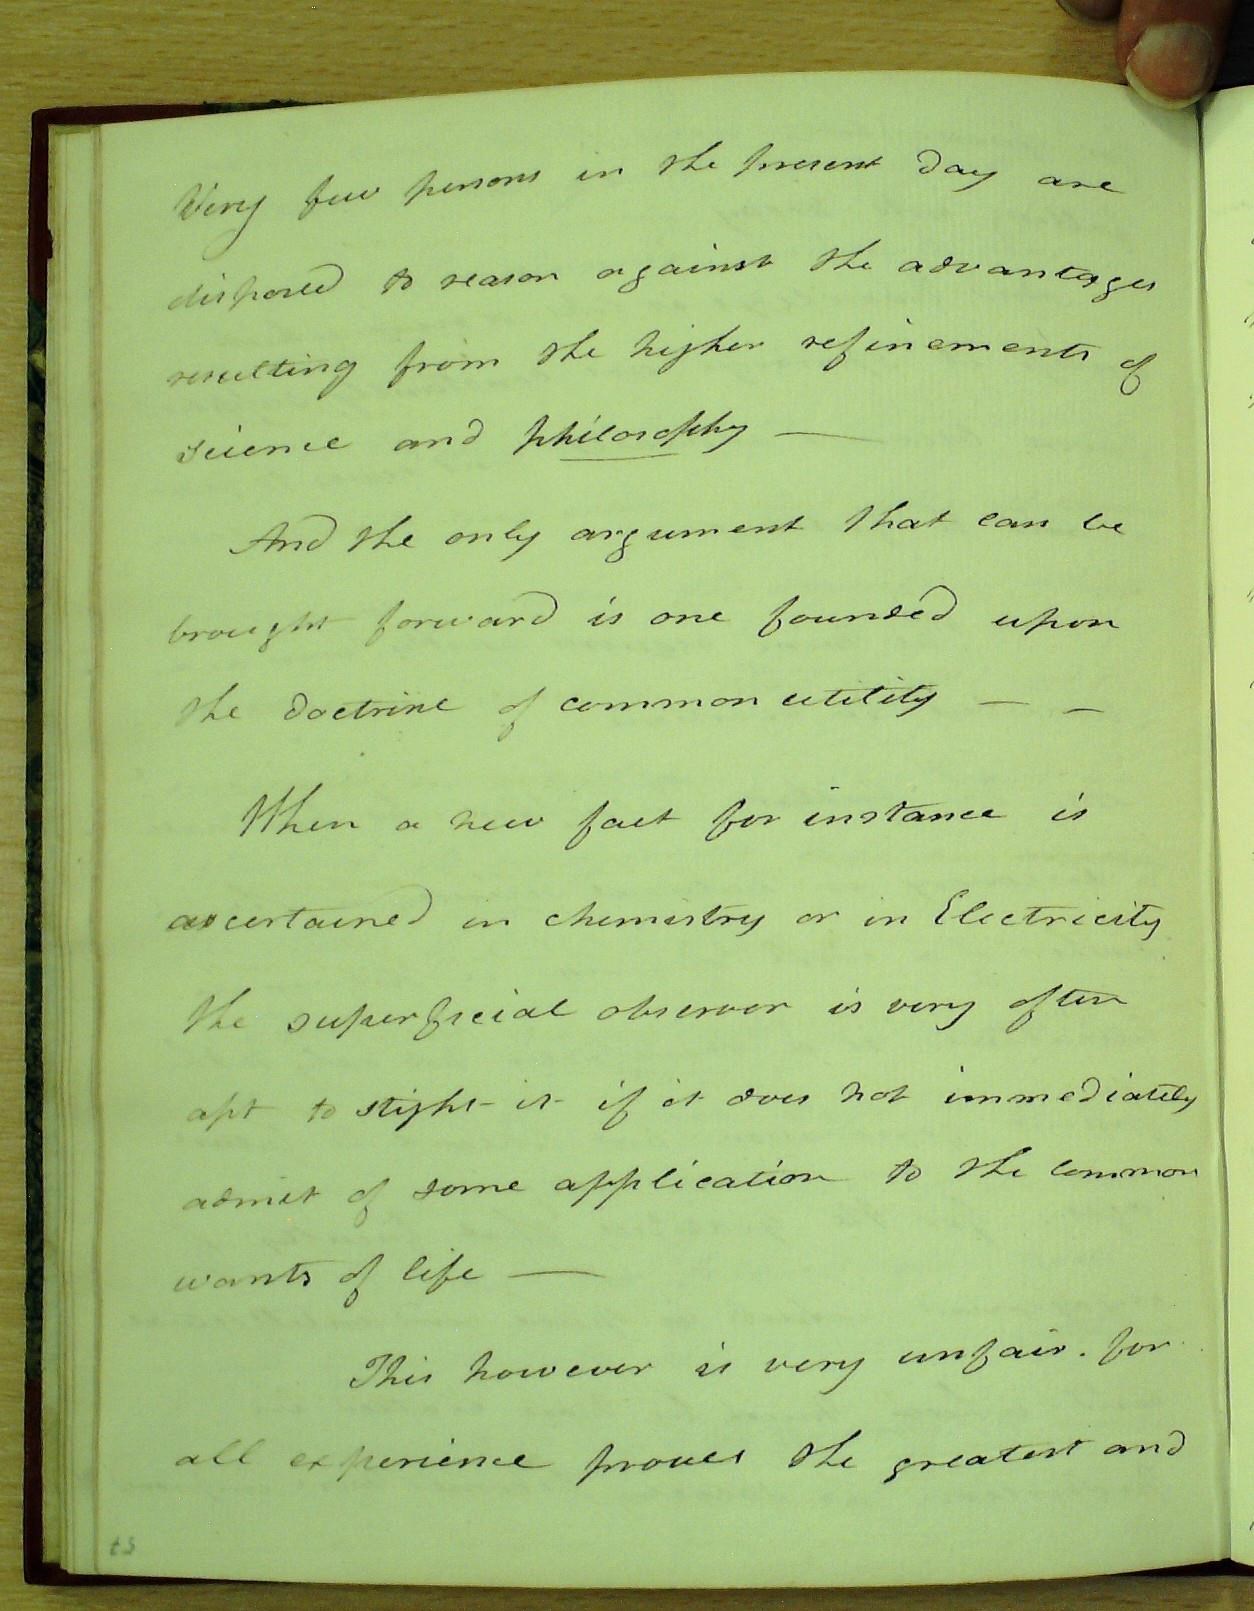 Very few persons in the present day are
disposed to reason against the advantages
resulting from the higher refinements of
science and philosophy —
And the only argument that can be
brought forward is one founded upon
the doctrine of common utility — –
When a new fact for instance is
ascertained in chemistry or in Electricity
the superficial observer is very often
apt to slight it if it does not immediately
admit of some application to the common
wants of life —
This however is very unfair. for
all experience proves the greatest and